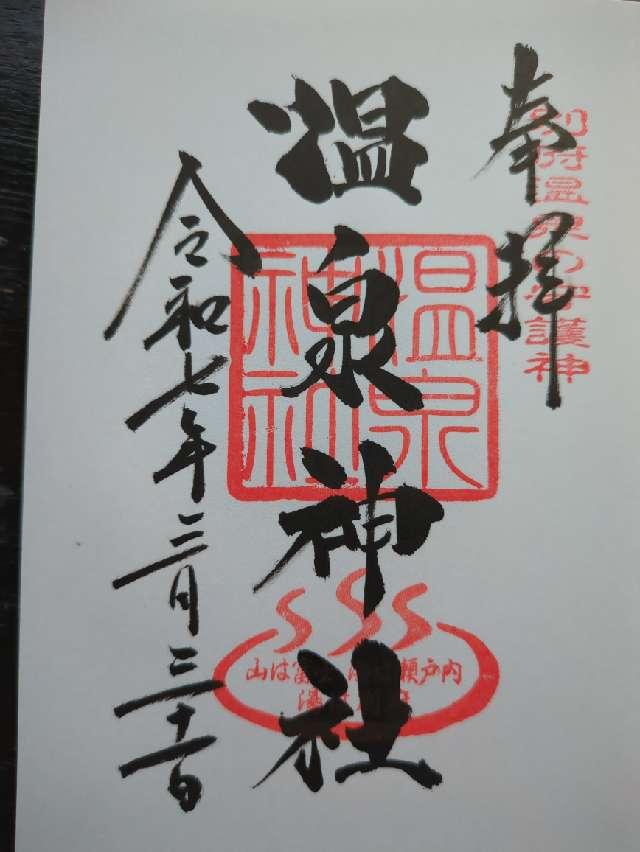 奉拝
別府温泉の守護神
温泉神社
温泉
神社
山は富 瀬戸内
湯
令和七年三月三十一日